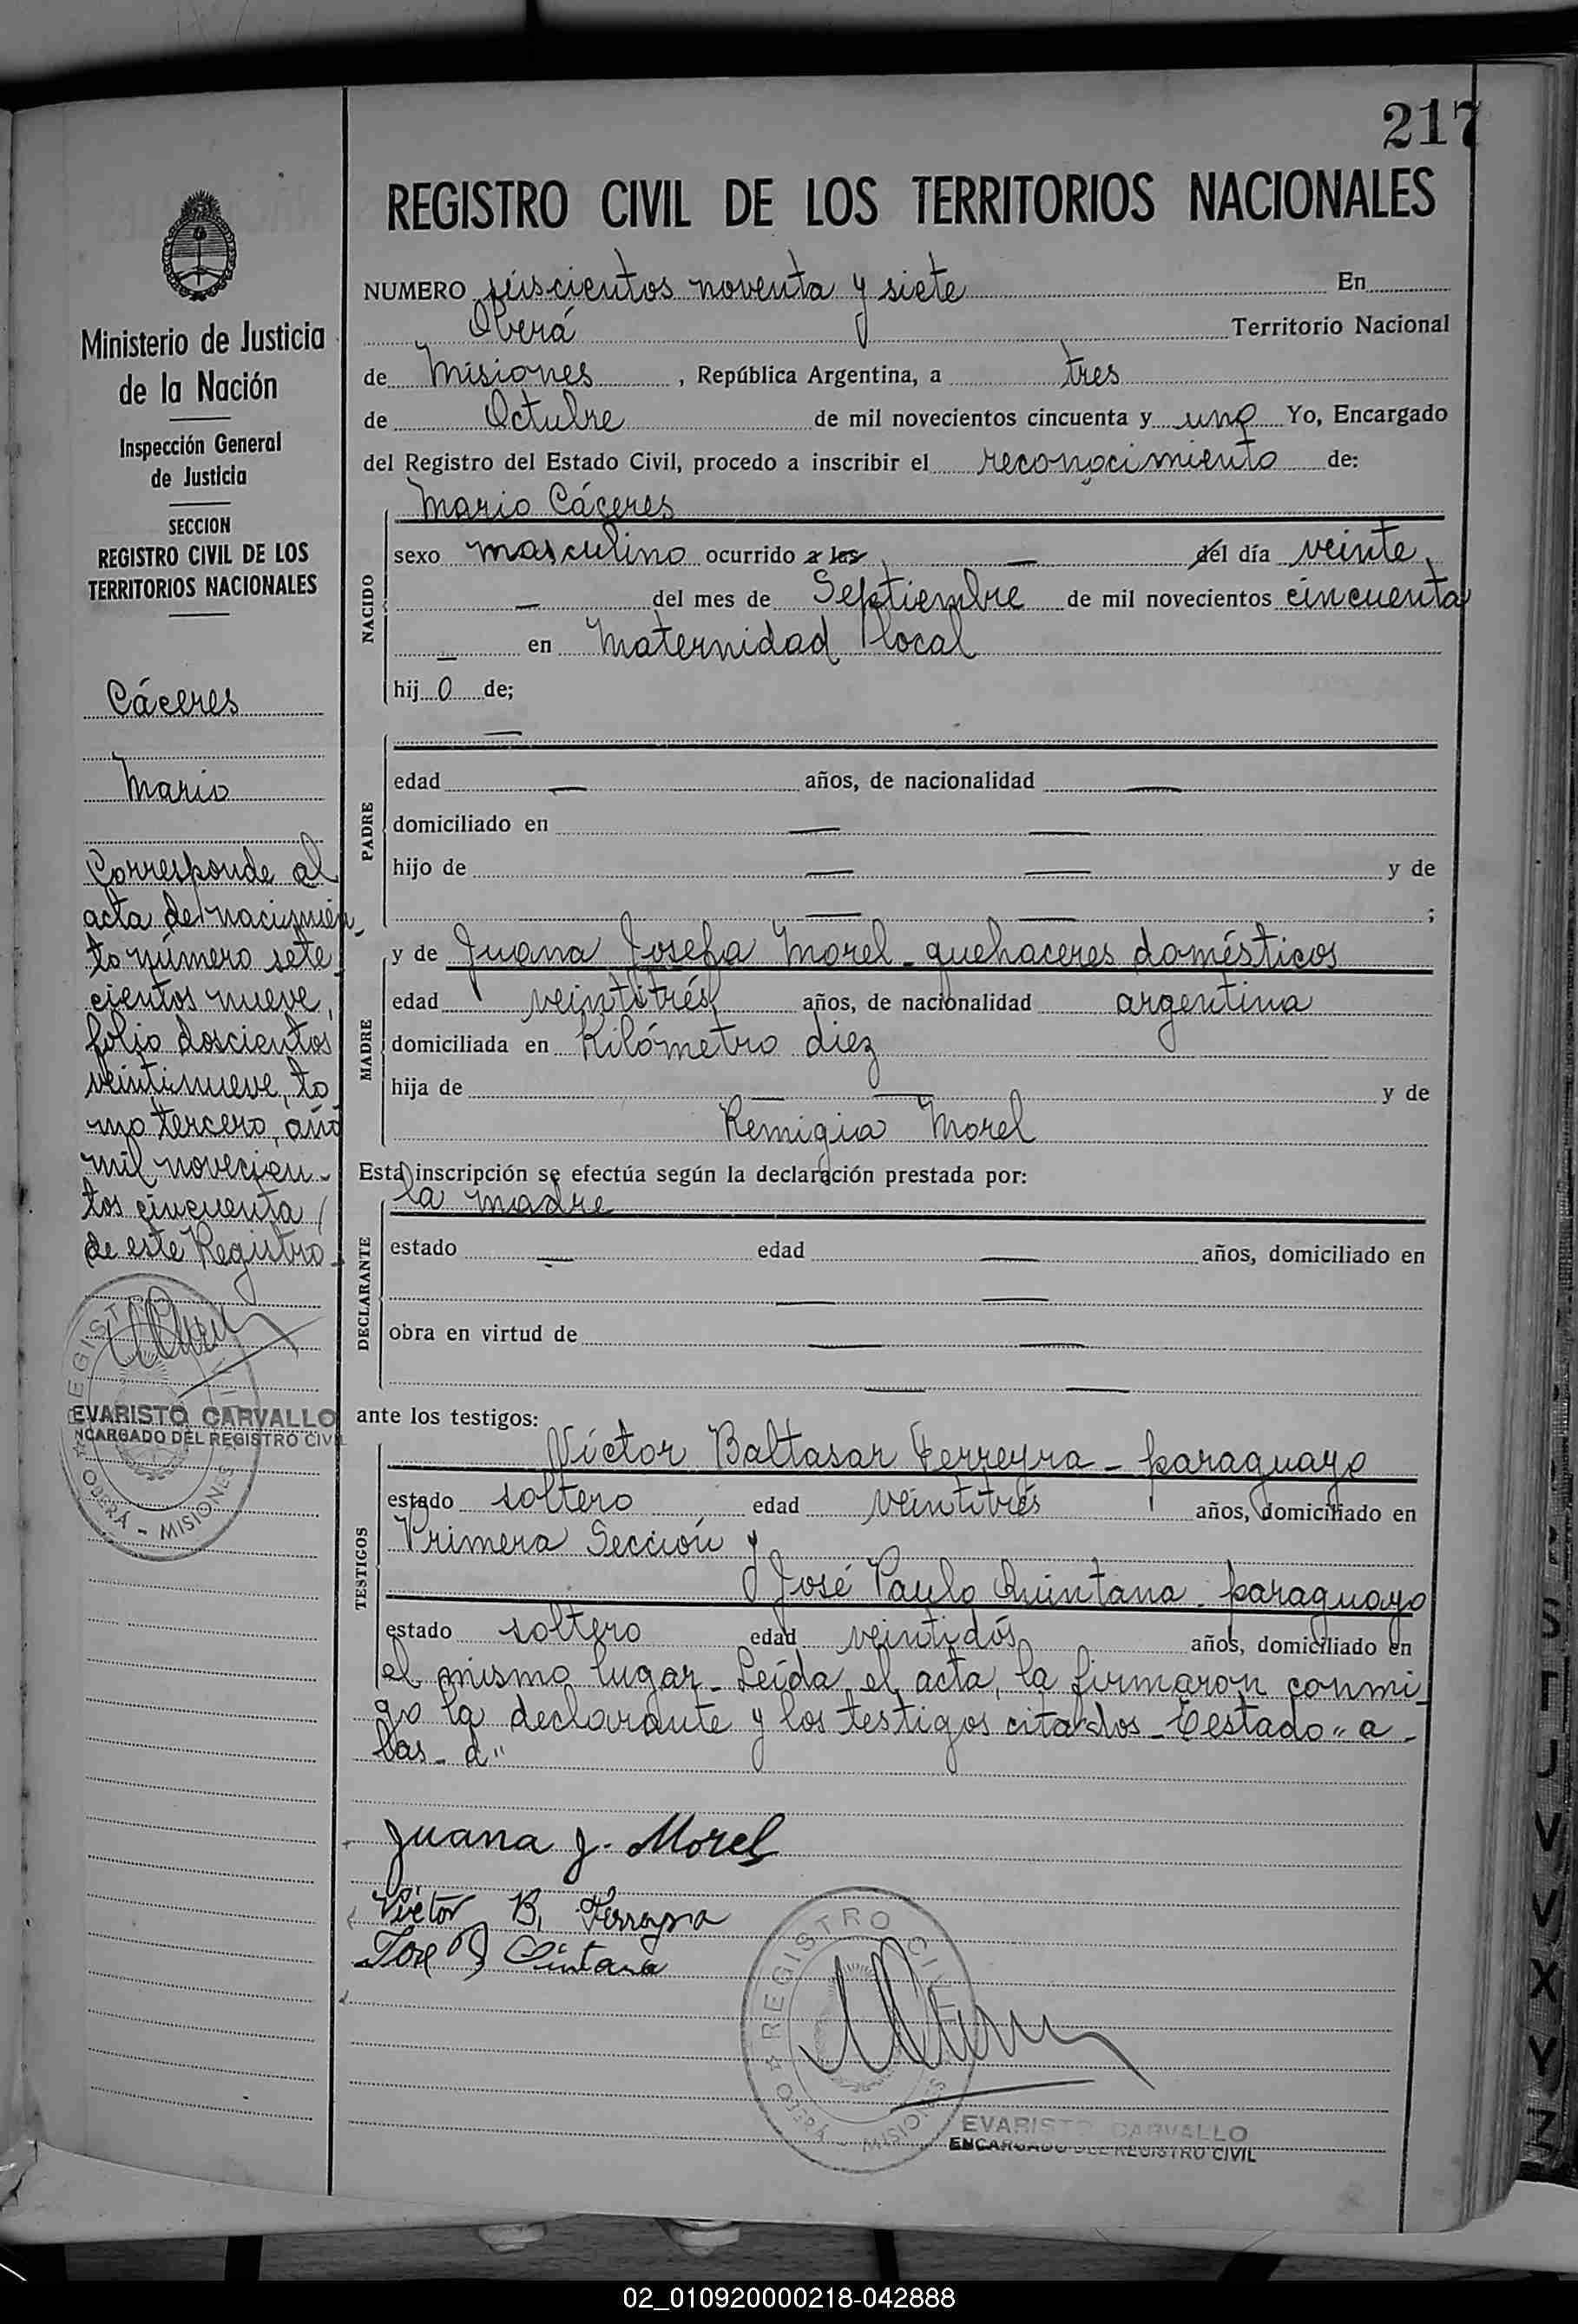 217
REGISTRO CIVIL DE LOS TERRITORIOS NACIONALES
Ministerio de Justicia
de la Nación
Inspección General
de Justicia
SECCION
REGISTRO CIVIL DE LOS
TERRITORIOS NACIONALES
Cáceres
Mario
Corresponde al
acta de nacimien-
to número sete-
cientos nueve,
folio doscientos
veintinueve, to
mo tercero, año
mil novecien-
tos cincuenta
de este Registro-
REGISTRO CIVIL
EVARISTO CARVALLO
ENCARGADO DEL REGISTRO CIVIL
OBERÁ - MISIONES
NUMERO seiscientos noventa y siete En
Oberá Territorio Nacional
de Misiones, República Argentina, a tres
de Octubre de mil novecientos cincuenta y uno Yo, Encargado
del Registro del Estado Civil, procedo a inscribir el reconocimiento de:
Mario Cáceres
NACIDO
sexo masculino ocurrido a las — del día veinte
— del mes de Septiembre de mil novecientos cincuenta
— en Maternidad local
hij o de;
—
PADRE
edad — años, de nacionalidad —
domiciliado en — —
hijo de — — y de
— — ;
MADRE
y de Juana Josefa Morel - quehaceres domésticos
edad veintitrés años, de nacionalidad argentina
domiciliada en Kilómetro diez
hija de — — y de
Remigia Morel
Esta inscripción se efectúa según la declaración prestada por:
DECLARANTE
la madre
estado — edad — años, domiciliado en
— —
obra en virtud de — —
— —
ante los testigos:
TESTIGOS
Víctor Baltasar Ferreyra - paraguayo
estado soltero edad veintitrés años, domiciliado en
Primera Sección y
José Paulo Quintana - paraguayo
estado soltero edad veintidós años, domiciliado en
el mismo lugar - Leída el acta, la firmaron conmi-
go la declarante y los testigos citados - Testado "a-
las - d"
Juana J. Morel
Víctor B, Ferreyra
José P Quintana
REGISTRO CIVIL
OBERÁ - MISIONES
EVARISTO CARVALLO
ENCARGADO DEL REGISTRO CIVIL
S
T
U
V
V
X
Y
Z
02_010920000218-042888